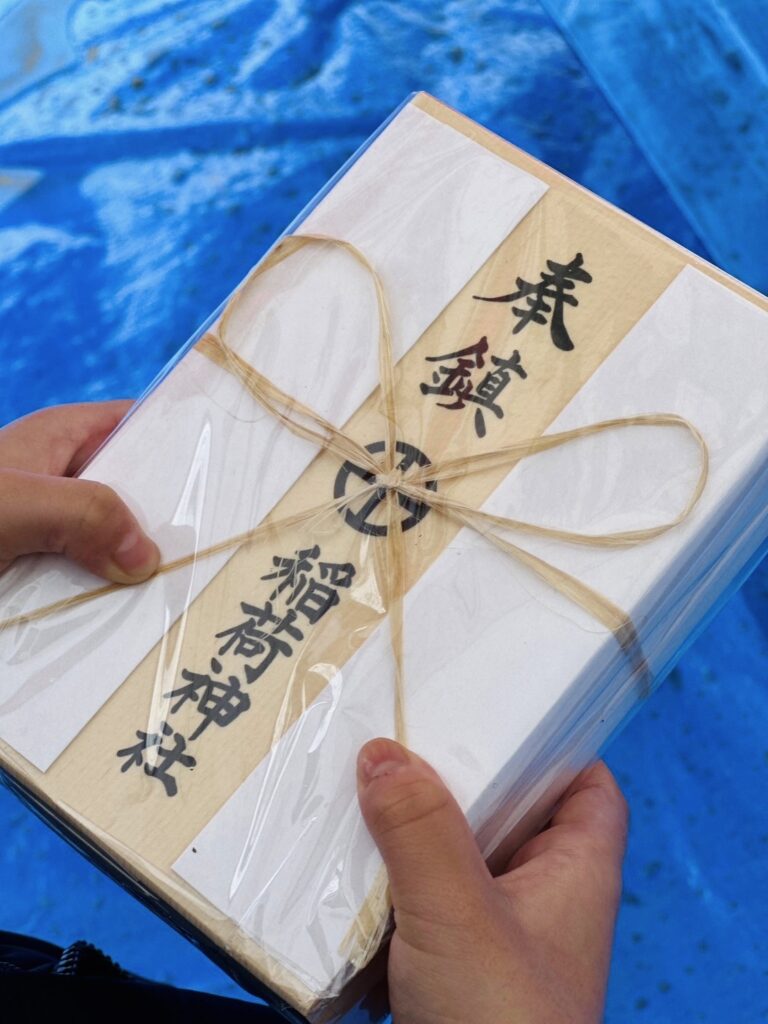 奉鎮
稲荷神社